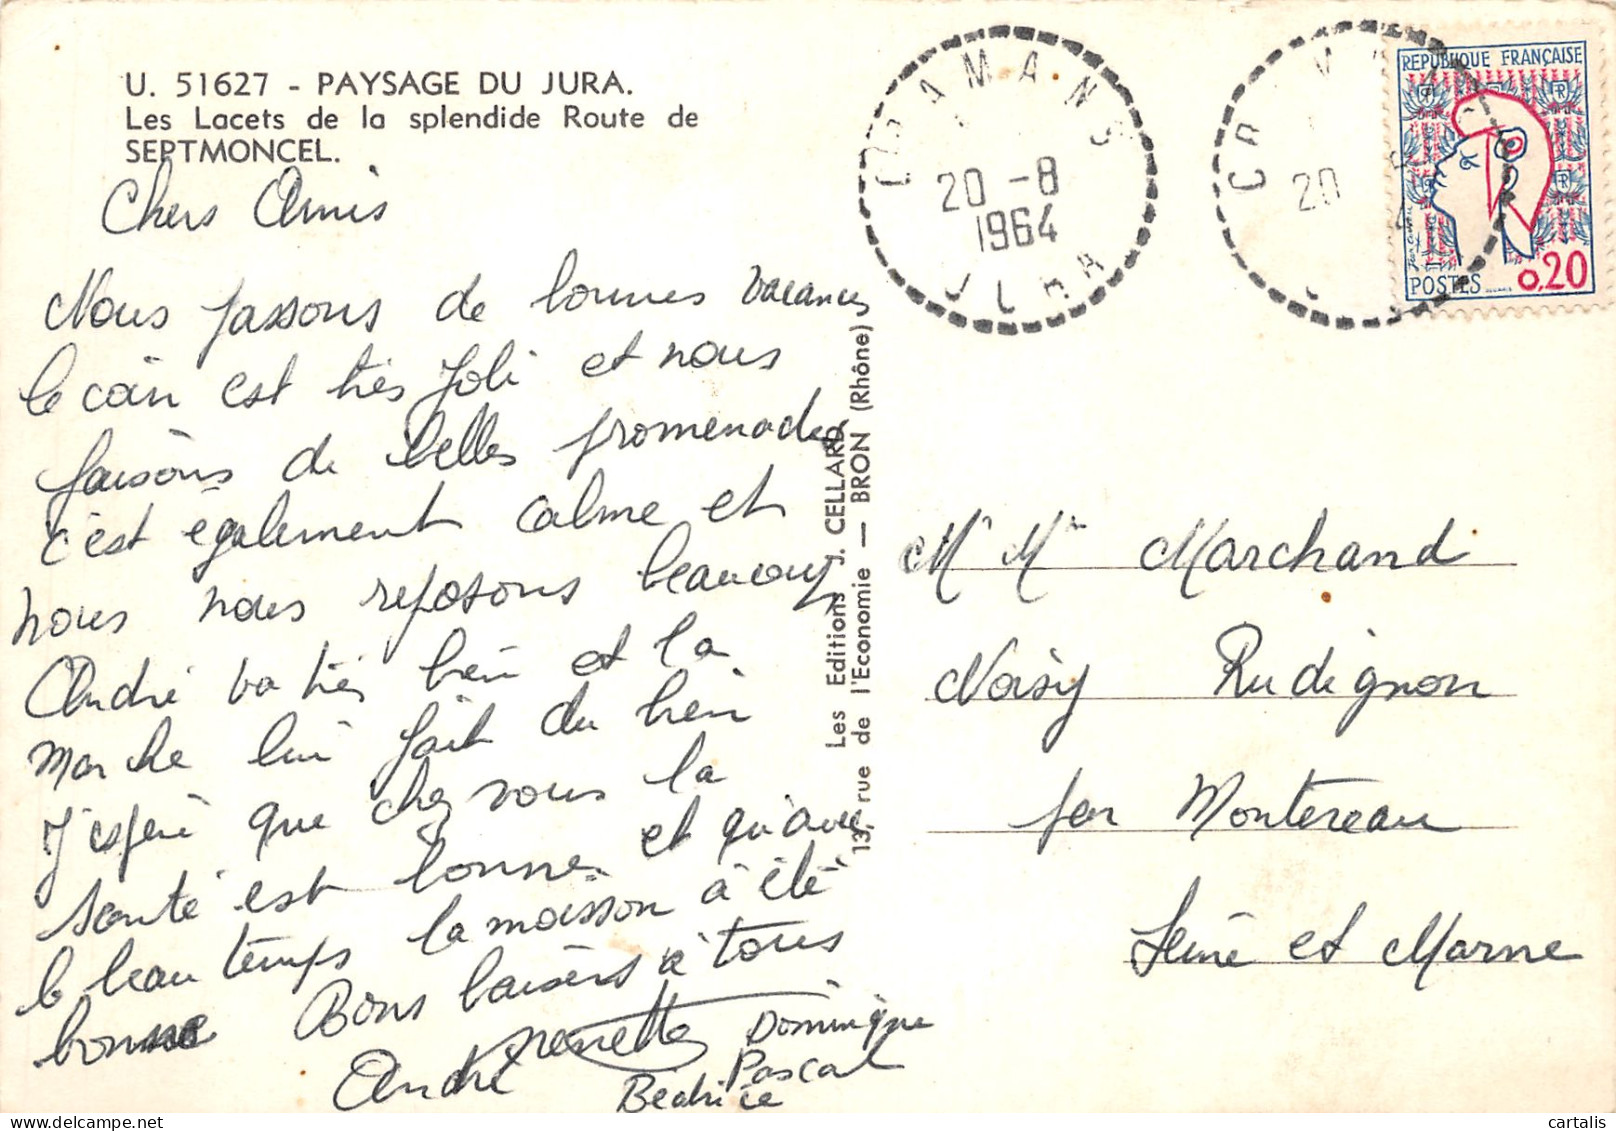 U. 51627 - PAYSAGE DU JURA.
Les Lacets de la splendide Route de
SEPTMONCEL.
Chers Amis
Nous passons de bonnes vacances
le coin est très joli et nous
faisons de belles promenades
c'est également calme et
nous nous reposons beaucoup
André va très bien et la
marche lui fait du bien
J'espère que chez vous la
santé est bonne et qu'avec
le beau temps la moisson a été
bonne Bons baisers à tous
André Ginette Dominique
Pascal
Béatrice
Les Editions J. CELLARD
13, rue de l'Economie — BRON (Rhône)
CRAMANS
20 -8
1964
JURA
CRAMANS
20
REPUBLIQUE FRANÇAISE
POSTES 0,20
Mr Me Marchand
Noisy Rudignon
par Montereau
Seine et Marne
cartalis